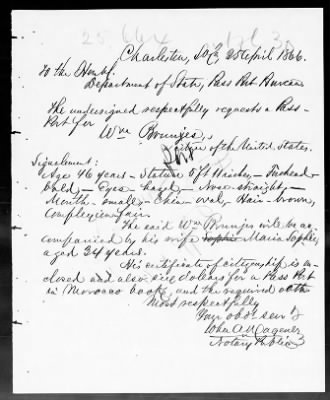 Charleston, So Ca, 25 April 1866.
To the Honbl.
Department of State, Pass Port Bureau
The undersigned respectfully requests a Pass-
Port for
Wm Brunjes,
citizen of the United States.
Signalement:
Age 46 years – Stature 5 ft inches – Forehead
bald – Eyes hazel – Nose straight –
Mouth small – Chin oval, Hair – brown,
complexion fair.
The said Wm Brunjes will be ac-
companied by his wife Sophie Maria Sophie,
aged 34 years.
His certificate of citizenship is in-
closed and also six dollars for a Pass Port
in Morocco book, and the required oath
Most respectfully
Your obdt servt
John A Wagener
Notary Public